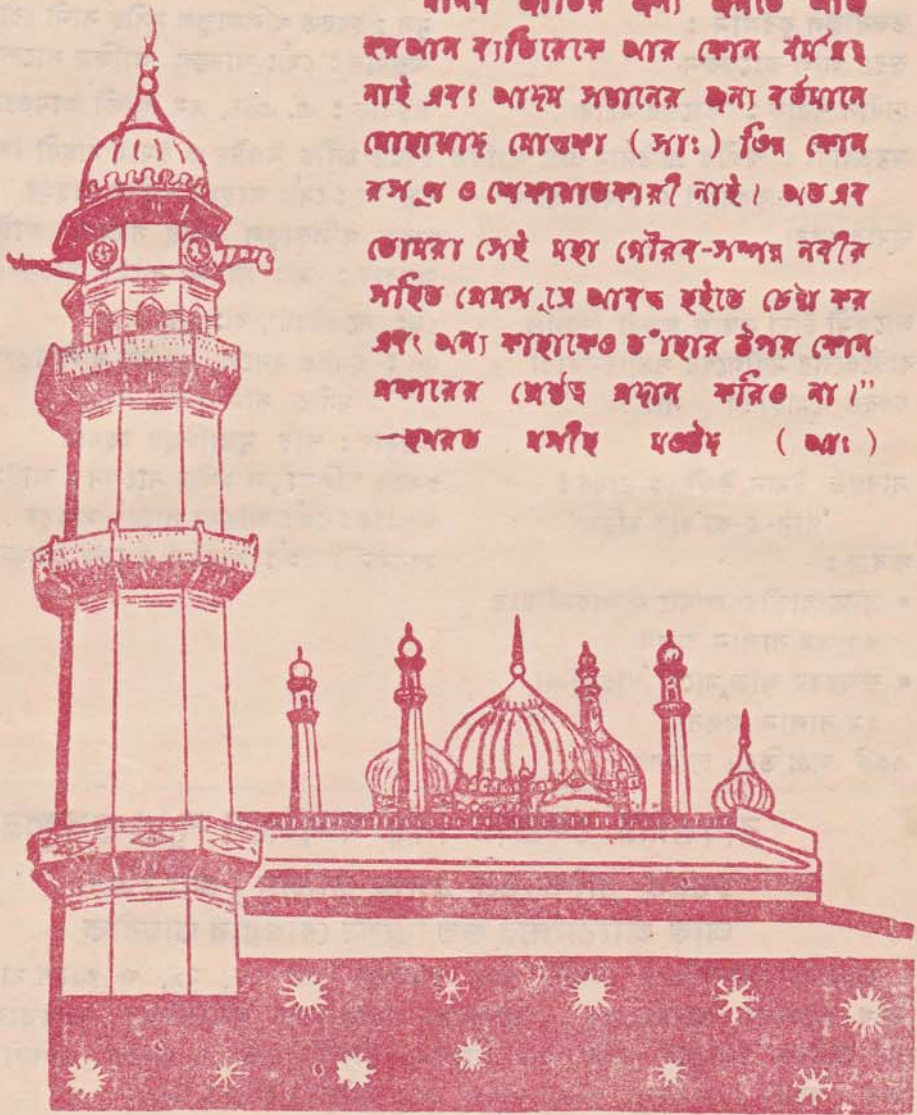 মানব জাতির জন্য জগতে আজ
কুরআন ব্যতিরেকে আর কোন ধর্মগ্রন্থ
নাই এবং আদম সন্তানের জন্য বর্তমানে
মোহাম্মাদ মোস্তফা (সাঃ) ভিন্ন কোন
রসূল ও শেফায়াতকারী নাই। অতএব
তোমরা সেই মহা গৌরব-সম্পন্ন নবীর
সহিত প্রেমসূত্রে আবদ্ধ হইতে চেষ্টা কর
এবং অন্য কাহাকেও তাঁহার উপর কোন
প্রকারের শ্রেষ্ঠত্ব প্রদান করিও না।"
—হযরত মসীহ মওউদ (আঃ)